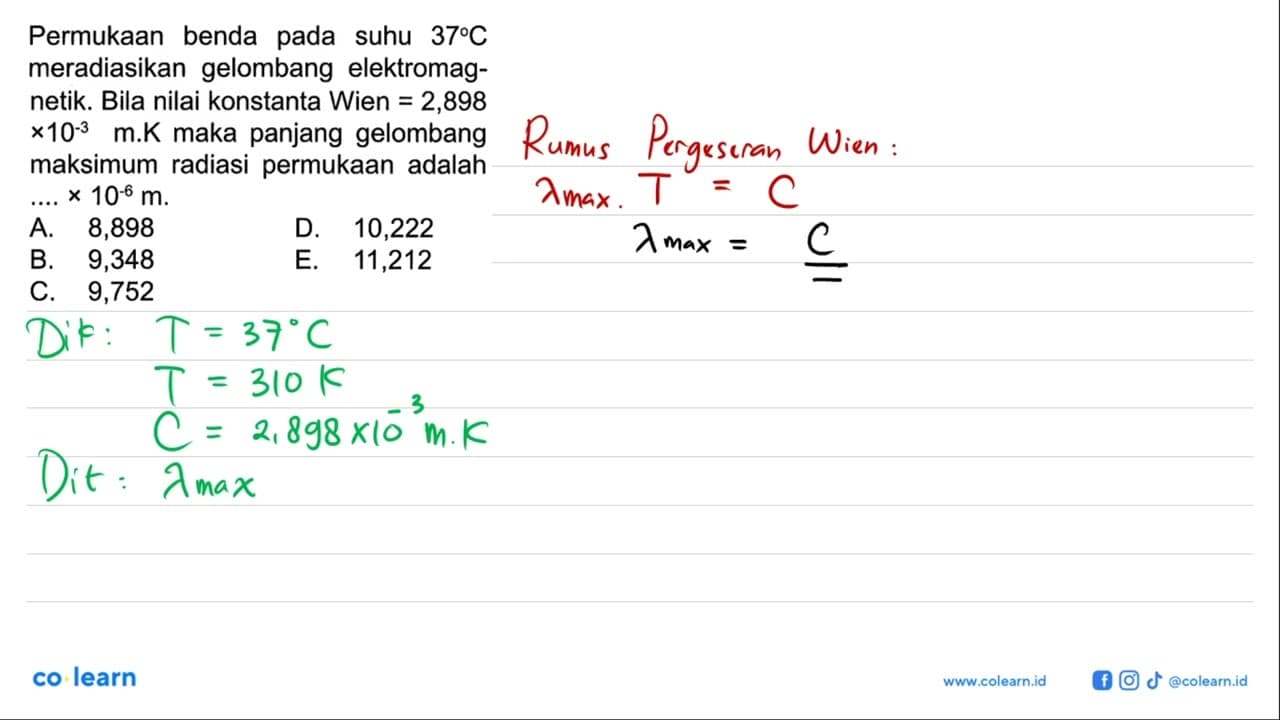 Permukaan benda pada suhu 37°C
meradiasikan gelombang elektromag-
netik. Bila nilai konstanta Wien = 2,898
×10⁻³ m.K maka panjang gelombang
maksimum radiasi permukaan adalah
.... × 10⁻⁶ m.
A. 8,898 D. 10,222
B. 9,348 E. 11,212
C. 9,752
Rumus Pergeseran Wien :
λmax. T = C
λmax = C
Dik: T = 37°C
T = 310 K
C = 2,898 x10⁻³ m.K
Dit : λmax
co learn
www.colearn.id
@colearn.id